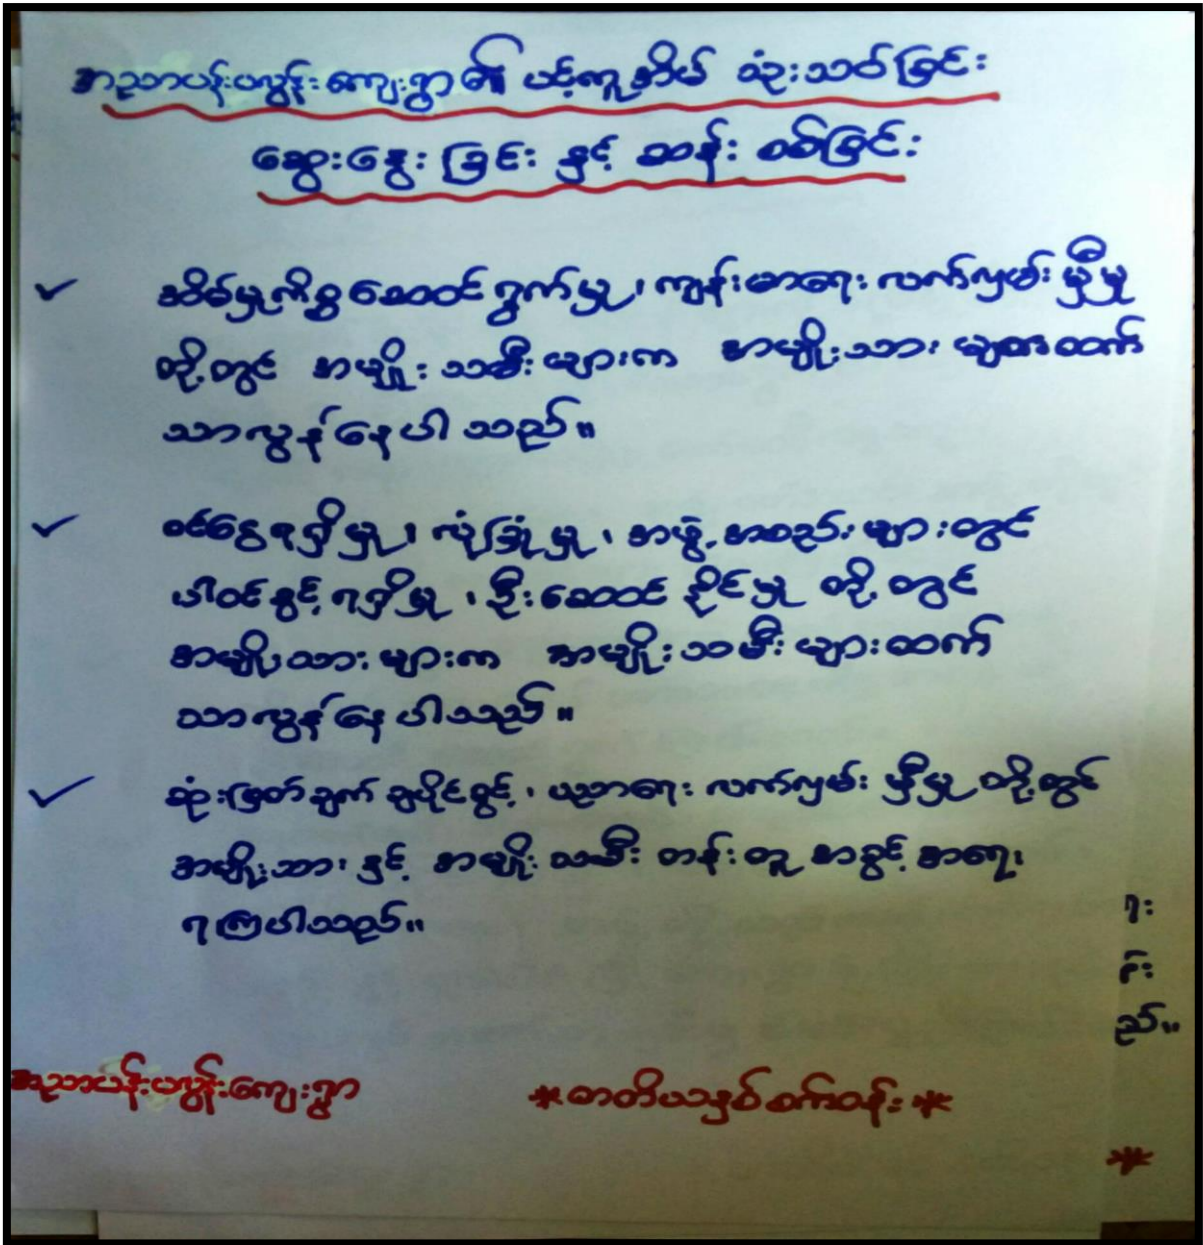 အညာပန်းပလွန်းကျေးရွာ၏ ပင့်ကူအိမ် သုံးသပ်ခြင်း
ဆွေးနွေးခြင်း နှင့် ဆန်းစစ်ခြင်း
✓ အိမ်မှုကိစ္စဆောင်ရွက်မှု၊ ကျန်းမာရေးလက်လှမ်းမှီမှု
တို့တွင် အမျိုးသမီးများက အမျိုးသားများထက်
သာလွန်နေပါသည်။
✓ ဝင်ငွေရရှိမှု၊ လုံခြုံမှု၊ အဖွဲ့အစည်းများတွင်
ပါဝင်ခွင့်ရရှိမှု၊ ဦးဆောင်နိုင်မှု တို့တွင်
အမျိုးသားများက အမျိုးသမီးများထက်
သာလွန်နေပါသည်။
✓ ဆုံးဖြတ်ချက်ချပိုင်ခွင့်၊ ပညာရေးလက်လှမ်းမှီမှုတို့တွင်
အမျိုးသား နှင့် အမျိုးသမီး တန်းတူအခွင့်အရေး
ရကြပါသည်။
ရး
ည်။
အညာပန်းပလွန်းကျေးရွာ *တတိယနှစ်စက်ဝန်း*
*